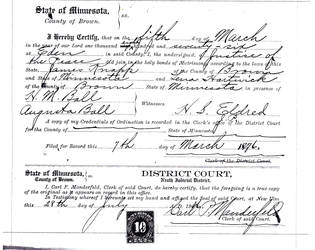 State of Minnesota,
County of Brown.
ss.
I hereby Certify, that on the fifth day of March
in the year of our Lord one thousand hundred and seventy-six
Eden in said County I, the undersigned, a Justice of
the Peace did join in the holy bonds of Matrimony according to the laws of this
State, James Knapp of the County of Brown
and State of Minnesota and Hartwick
of the County of Brown State of Minnesota in presence of
H. M. Ball
Augusta Ball Witnesses H. S. Eldred
A copy of my Credentials of Ordination is recorded in the Clerk's office of the District Court
for the County of State of Minnesota
Filed for Record this 7th day of March 1876.
Clerk of the District Court
State of Minnesota,
County of Brown.
ss.
DISTRICT COURT,
Ninth Judicial District.
I, Carl P. Manderfeld, Clerk of said Court, do hereby certify, that the foregoing is a true copy
of the original as it appears on record in this office.
In Testimony whereof I hereunto set my hand and affixed the Seal of said Court, at New Ulm
this 28th day of July
10
Carl P. Manderfeld
Clerk of said Court.